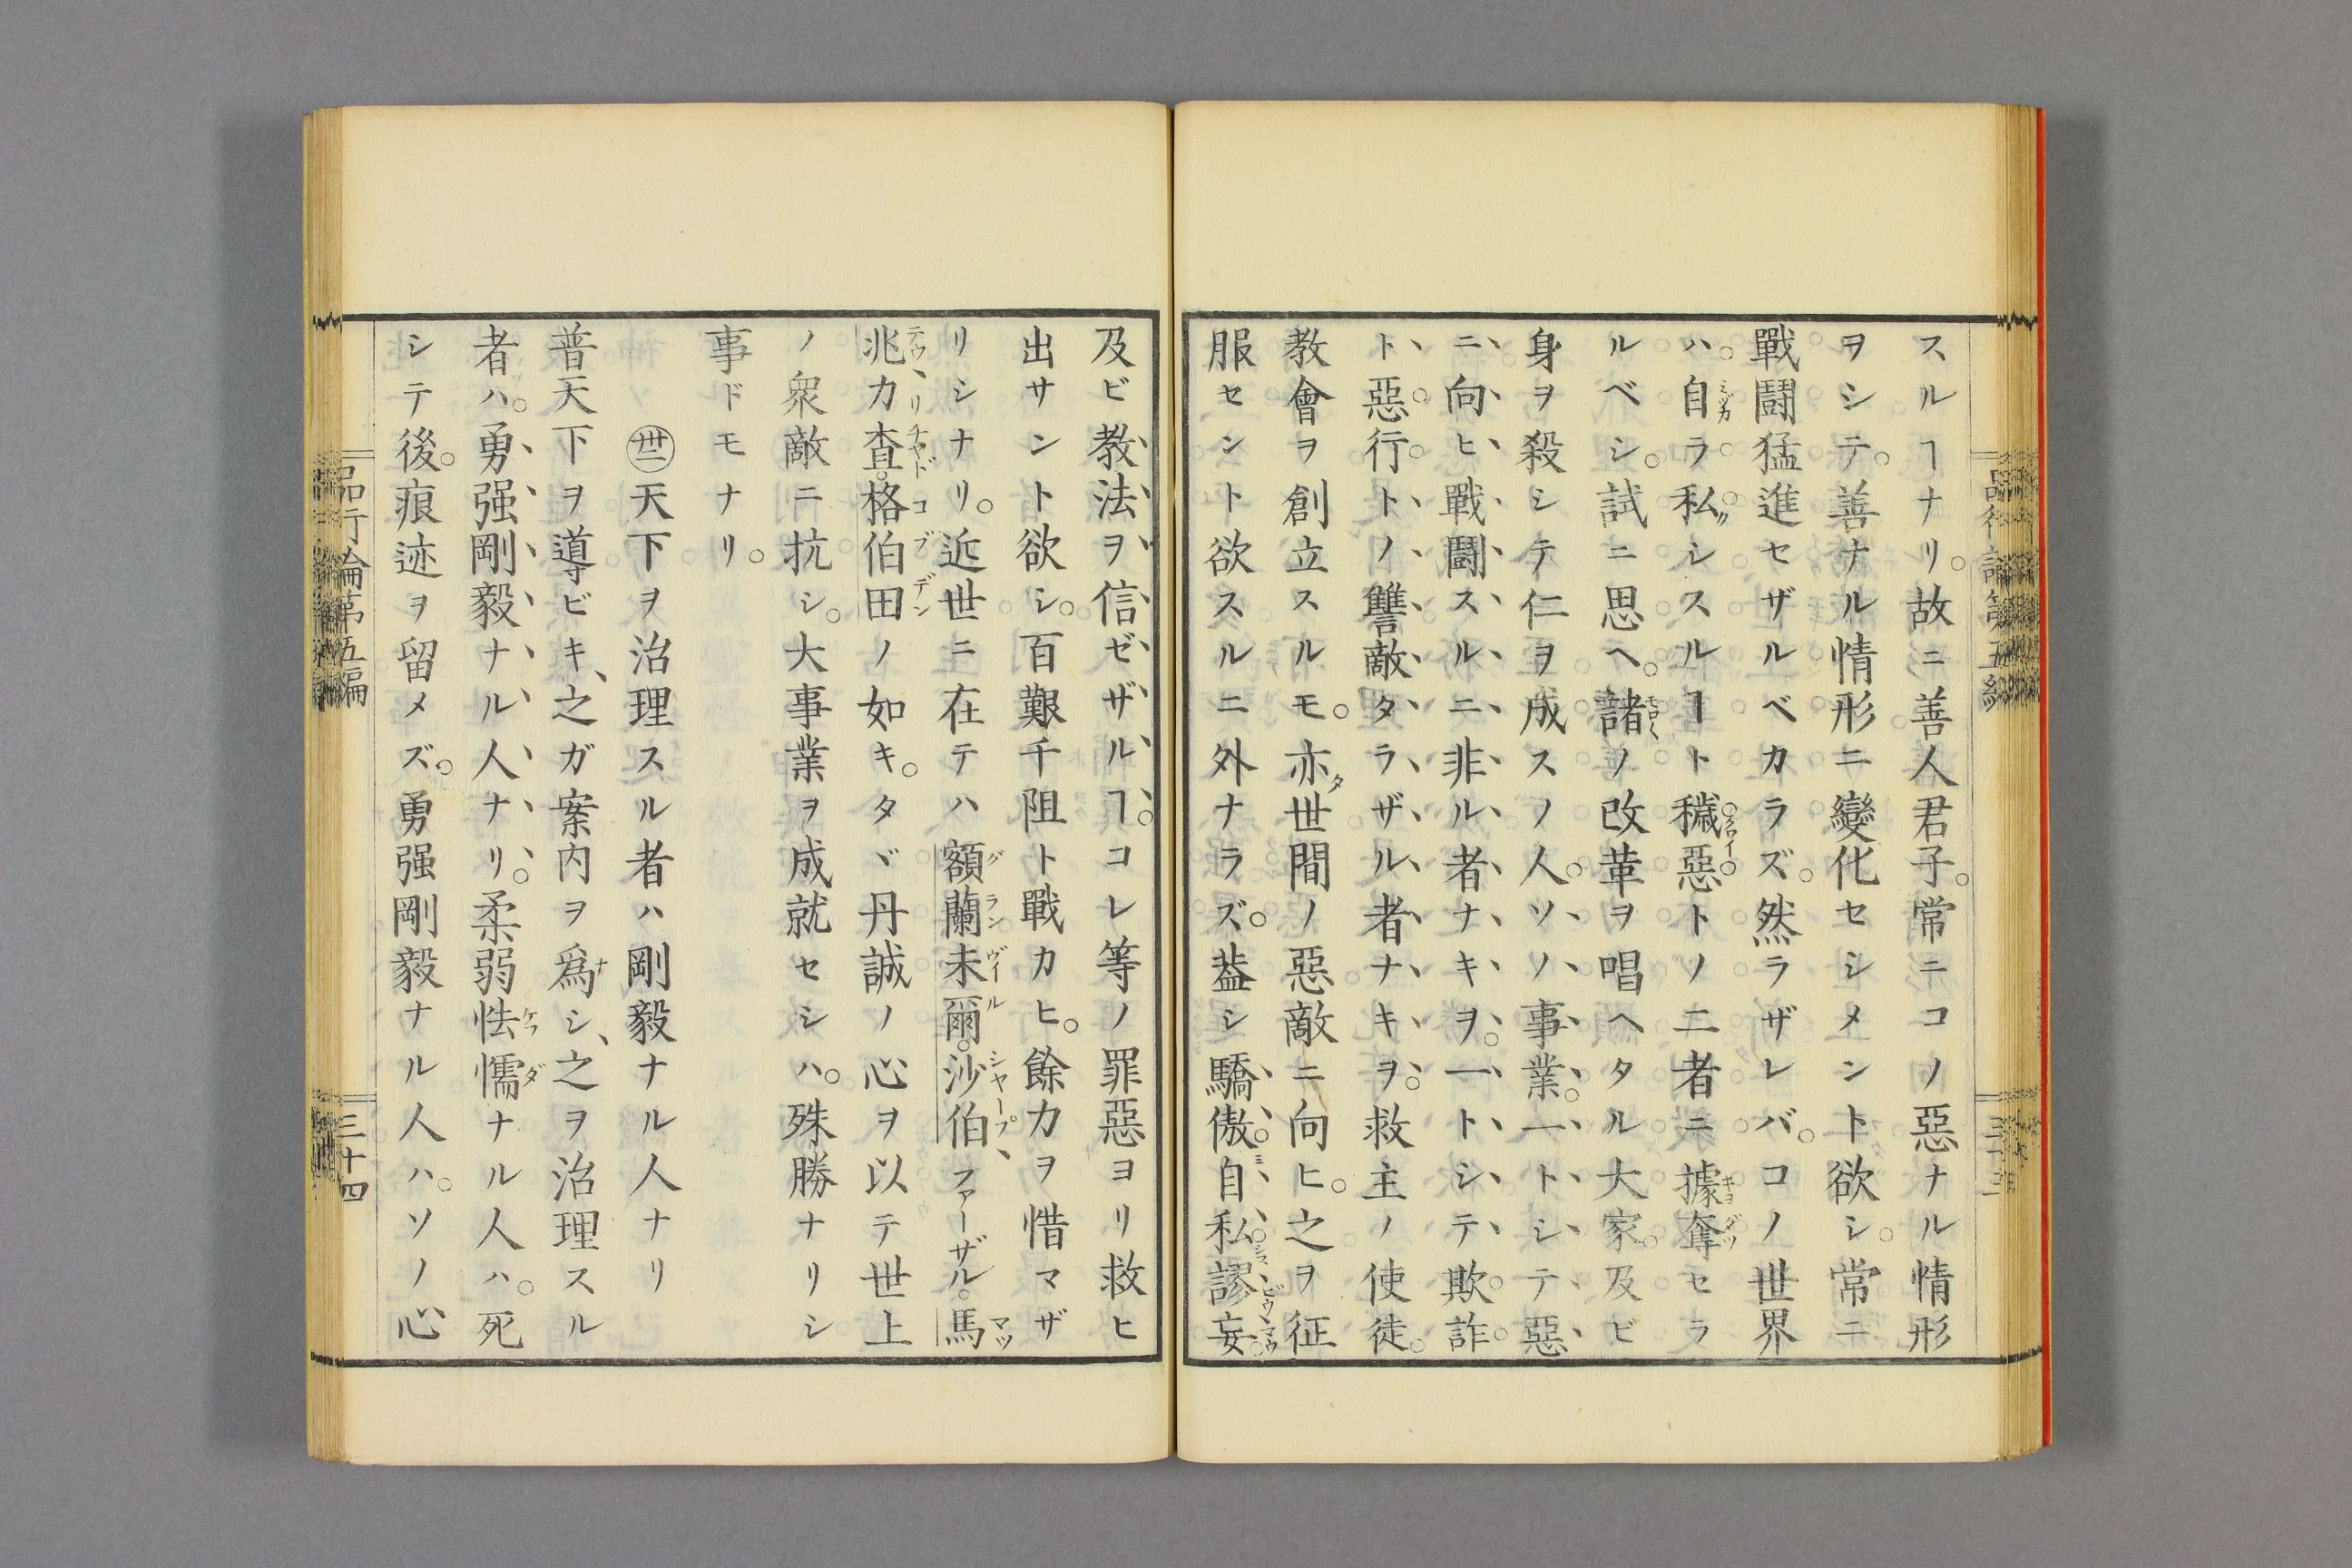 スルヿナリ。故ニ善人君子。常ニコノ惡ナル情形
ヲシテ。善ナル情形ニ變化セシメント欲シ。常ニ
戰鬪猛進セザルベカラズ。然ラザレバ。コノ世界
ハ。自ラ私シスルヿト穢惡トノ二者ニ據奪セラ
ルベシ。試ニ思ヘ。諸ノ改革ヲ唱ヘタル大家。及ビ
身ヲ殺シテ仁ヲ成スノ人。ソノ事業。一トシテ惡
ニ向ヒ戰鬪スルニ非ル者ナキヲ。一トシテ欺詐。
ト惡行トノ讐敵タラザル者ナキヲ。救主ノ使徒。
教會ヲ創立スルモ。亦世間ノ惡敵ニ向ヒ。之ヲ征
服セント欲スルニ外ナラズ。葢シ驕傲。自私。謬妄。
及ビ教法ヲ信ゼザルヿ。コレ等ノ罪惡ヨリ救ヒ
出サント欲シ。百艱千阻ト戰カヒ。餘力ヲ惜マザ
リシナリ。近世ニ在テハ額蘭未爾。沙伯ファーザル。馬
兆力査。格伯田ノ如キ。タヾ丹誠ノ心ヲ以テ世上
ノ衆敵ニ抗シ。大事業ヲ成就セシハ。殊勝ナリシ
事ドモナリ。
天下ヲ治理スル者ハ剛毅ナル人ナリ
普天下ヲ導ビキ、之ガ案内ヲ爲シ、之ヲ治理スル
者ハ。勇强剛毅ナル人ナリ。柔弱怯懦ナル人ハ。死
シテ後。痕迹ヲ留メズ。勇强剛毅ナル人ハ。ソノ心
品行論第五編
三十四